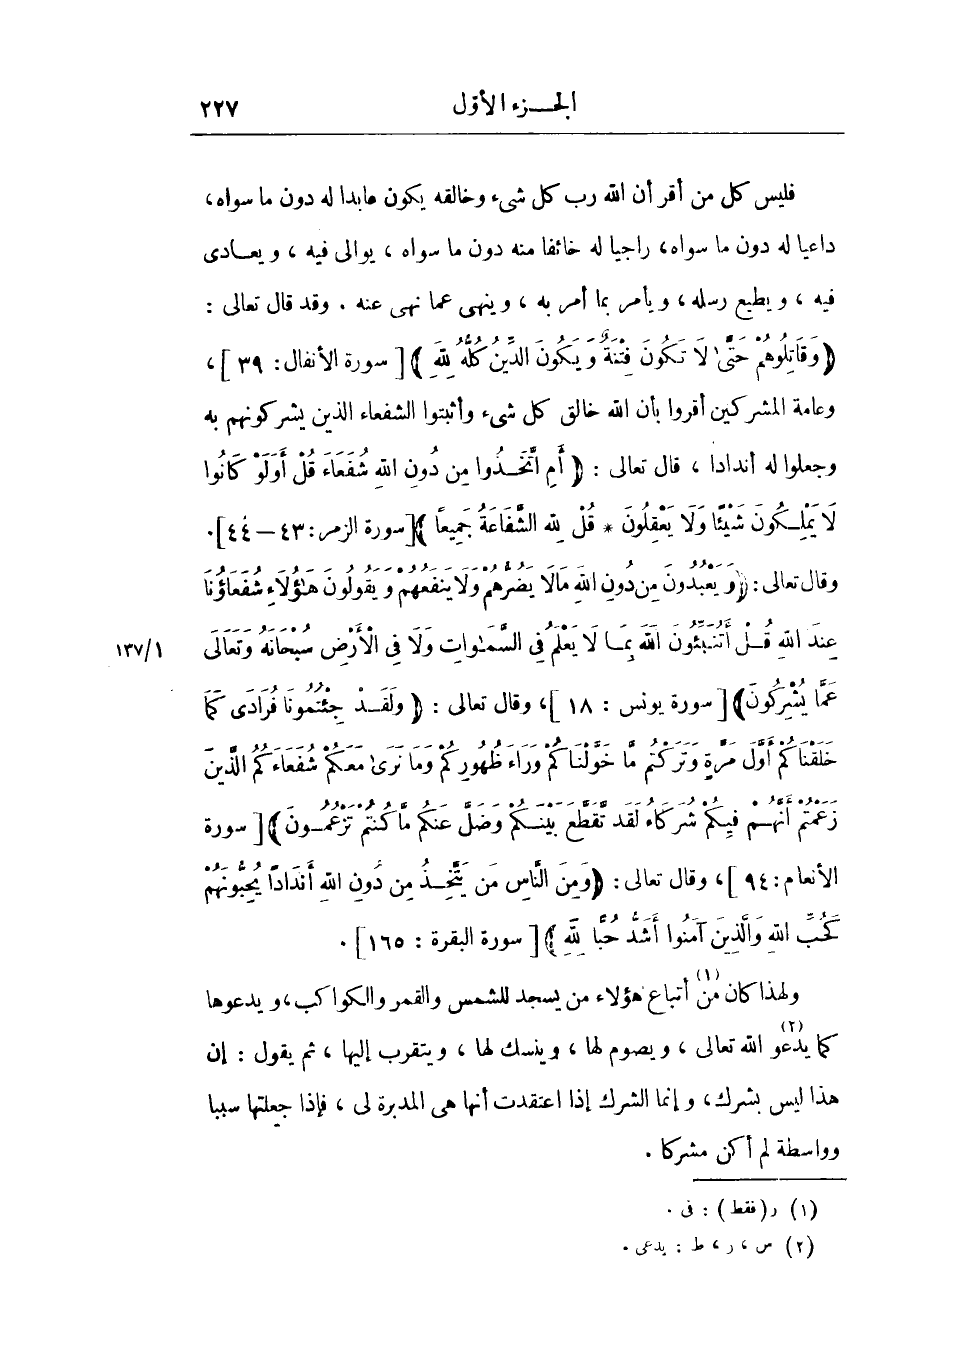 الجزء الأول ٢٢٧
فليس كل من أقر أن الله رب كل شىء وخالقه يكون عابدا له دون ما سواه،
داعيا له دون ما سواه، راجيا له خائفا منه دون ما سواه ، يوالى فيه ، ويعادى
فيه ، ويطيع رسله ، ويأمر بما أمر به ، وينهى عما نهى عنه . وقد قال تعالى :
﴿وَقَاتِلُوهُمْ حَتَّىٰ لَا تَكُونَ فِتْنَةٌ وَيَكُونَ الدِّينُ كُلُّهُ لِلَّهِ﴾ [ سورة الأنفال : ٣٩ ] ،
وعامة المشركين أقروا بأن الله خالق كل شىء وأثبتوا الشفعاء الذين يشركونهم به
وجعلوا له أندادا ، قال تعالى : ﴿أَمِ اتَّخَذُوا مِن دُونِ اللهِ شُفَعَاءَ قُلْ أَوَلَوْ كَانُوا
لَا يَمْلِكُونَ شَيْئًا وَلَا يَعْقِلُونَ * قُلْ لِلَّهِ الشَّفَاعَةُ جَمِيعًا﴾[سورة الزمر: ٤٣ – ٤٤].
وقال تعالى : ﴿وَيَعْبُدُونَ مِن دُونِ اللهِ مَالَا يَضُرُّهُمْ وَلَا يَنفَعُهُمْ وَيَقُولُونَ هَـٰؤُلَاءِ شُفَعَاؤُنَا
عِندَ اللهِ قُلْ أَتُنَبِّئُونَ اللهَ بِمَا لَا يَعْلَمُ فِى السَّمَـٰوَاتِ وَلَا فِى الْأَرْضِ سُبْحَانَهُ وَتَعَالَى ١٣٧/١
عَمَّا يُشْرِكُونَ﴾ [ سورة يونس : ١٨ ]، وقال تعالى : ﴿وَلَقَدْ جِئْتُمُونَا فُرَادَى كَمَا
خَلَقْنَاكُمْ أَوَّلَ مَرَّةٍ وَتَرَكْتُم مَّا خَوَّلْنَاكُمْ وَرَاءَ ظُهُورِكُمْ وَمَا نَرَىٰ مَعَكُمْ شُفَعَاءَكُمُ الَّذِينَ
زَعَمْتُمْ أَنَّهُمْ فِيكُمْ شُرَكَاءُ لَقَد تَّقَطَّعَ بَيْنَكُمْ وَضَلَّ عَنكُم مَّا كُنتُمْ تَزْعُمُونَ﴾ [ سورة
الأنعام : ٩٤ ]، وقال تعالى : ﴿وَمِنَ النَّاسِ مَن يَتَّخِذُ مِن دُونِ اللهِ أَندَادًا يُحِبُّونَهُمْ
كَحُبِّ اللهِ وَالَّذِينَ آمَنُوا أَشَدُّ حُبًّا لِلَّهِ﴾ [ سورة البقرة : ١٦٥ ] .
ولهذا كان من (١) أتباع هؤلاء من يسجد للشمس والقمر والكواكب، ويدعوها
كما يدعو (٢) الله تعالى ، ويصوم لها ، وينسك لها ، ويتقرب إليها ، ثم يقول : إن
هذا ليس بشرك ، وإنما الشرك إذا اعتقدت أنها هى المدبرة لى ، فإذا جعلتها سببا
وواسطة لم أكن مشركا .
(١) ر (فقط) : فى .
(٢) س ، ر ، ط : يدعى .